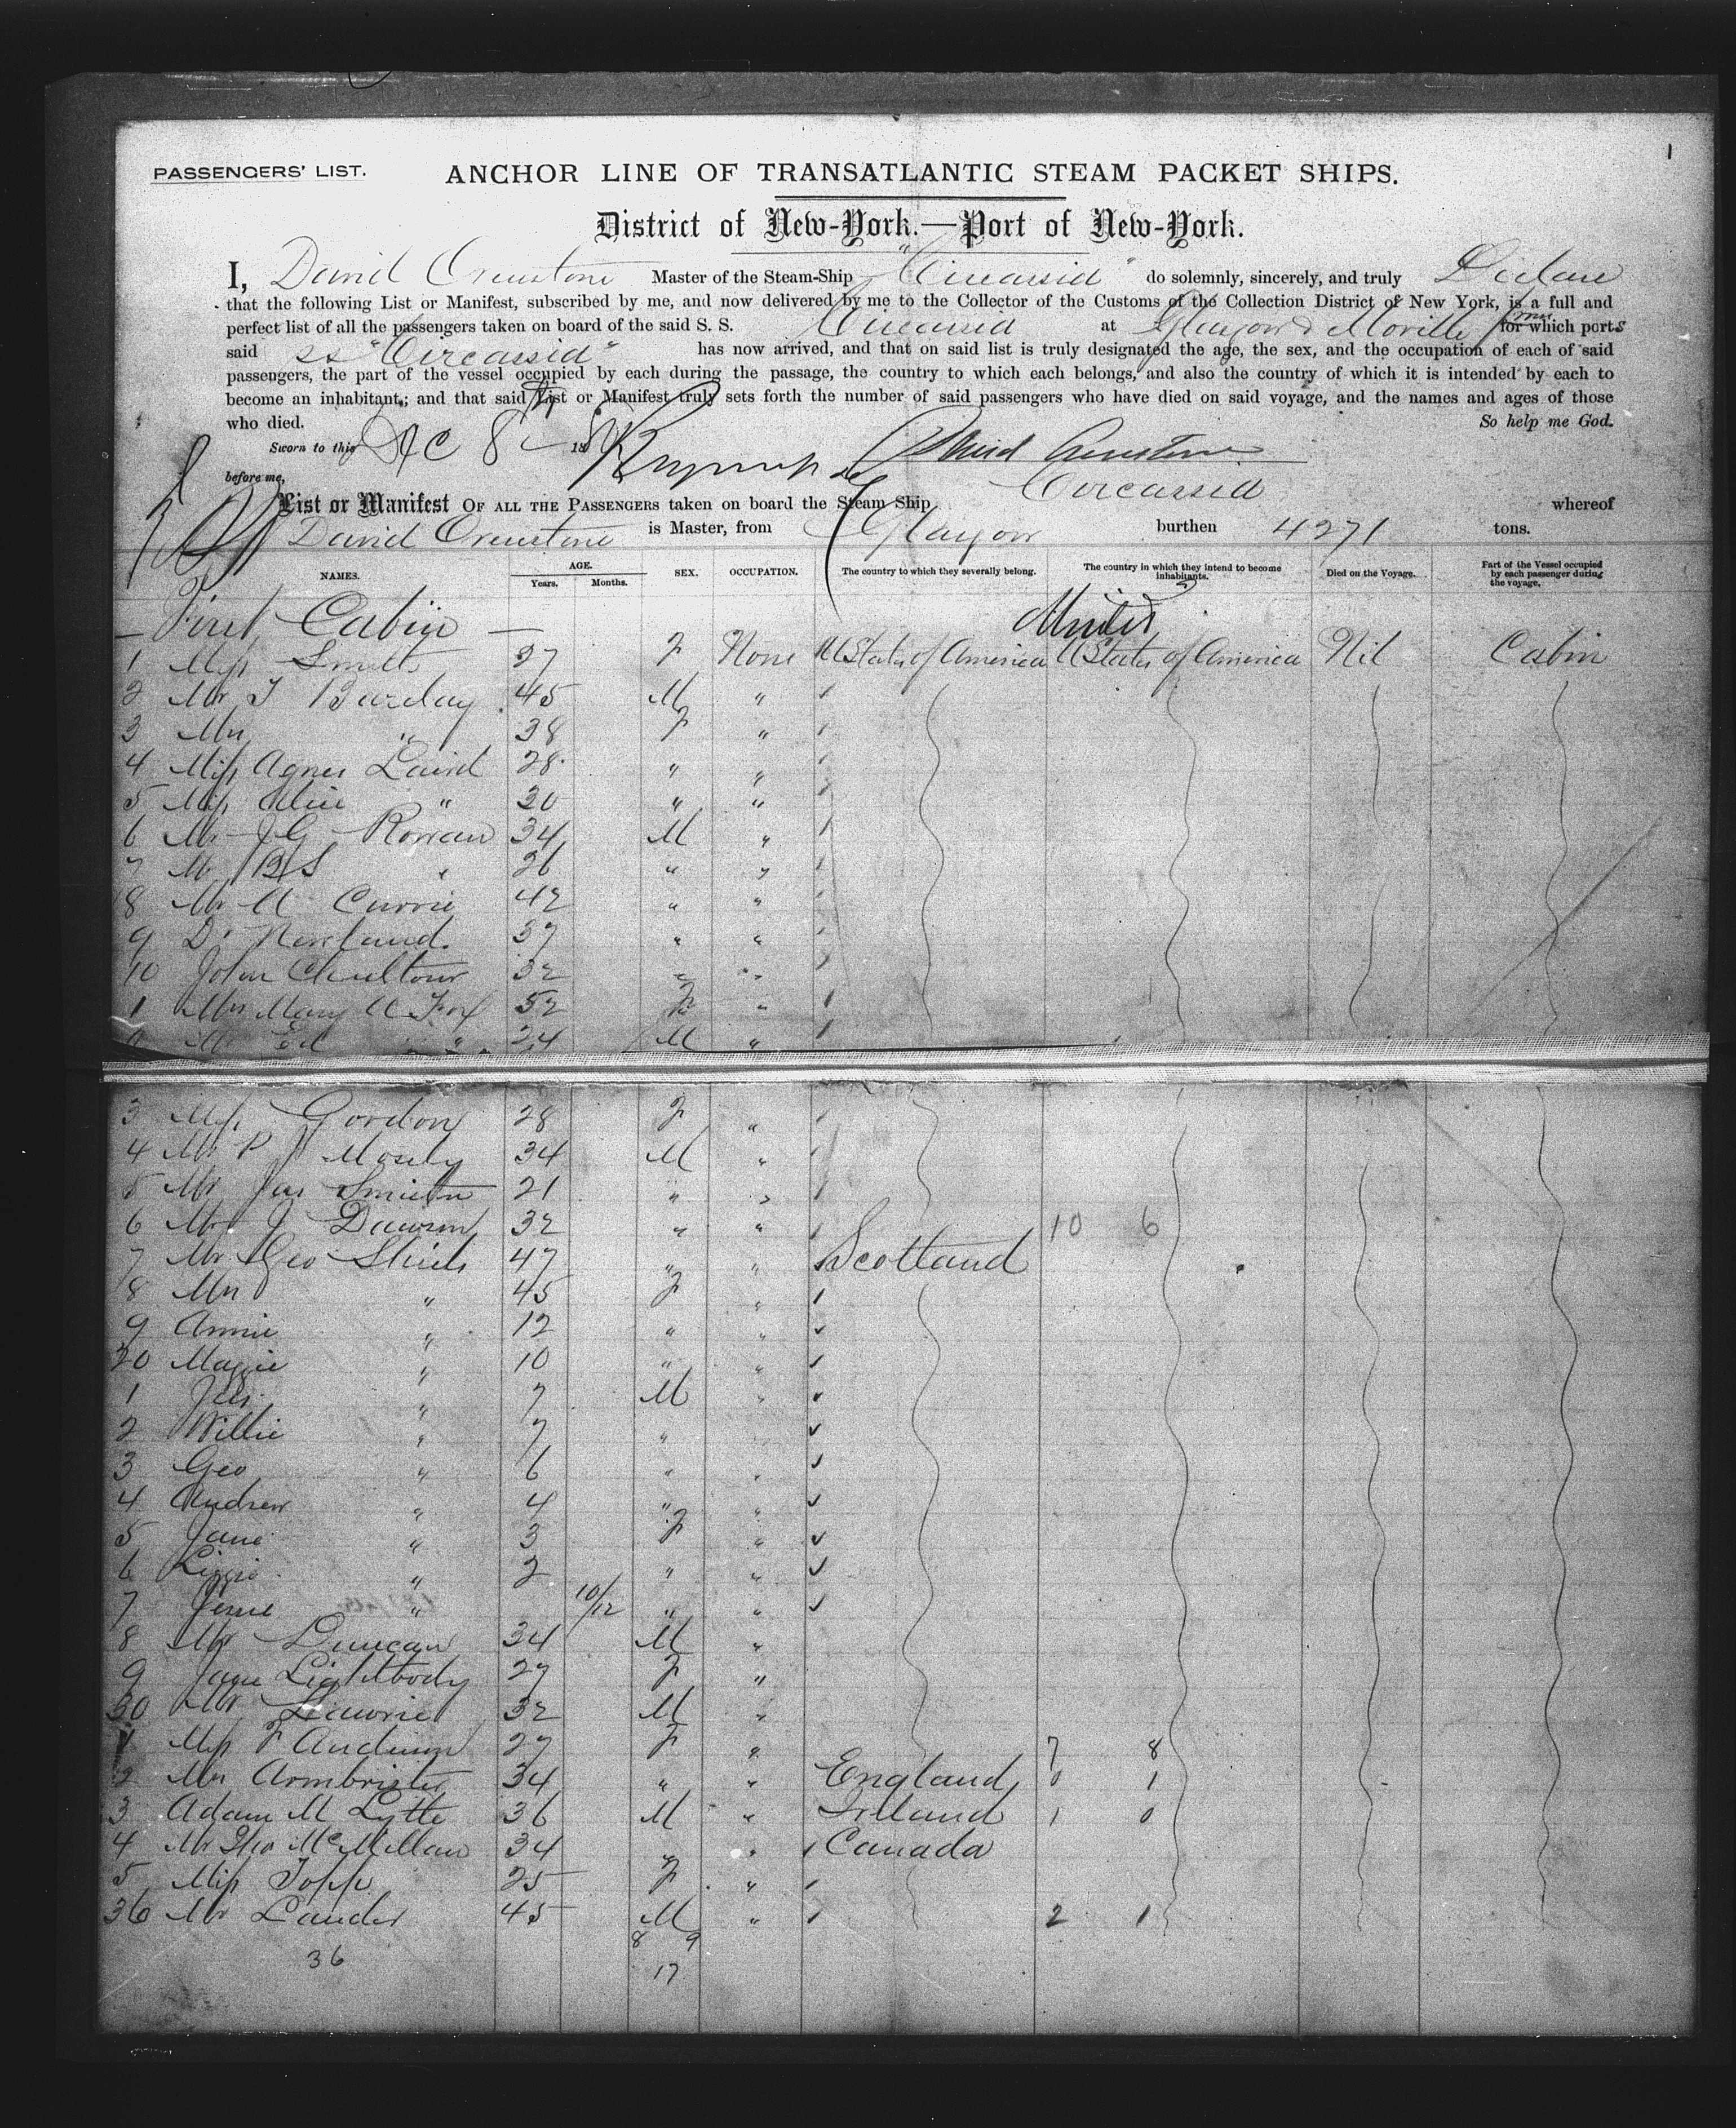 1
PASSENGERS' LIST. ANCHOR LINE OF TRANSATLANTIC STEAM PACKET SHIPS.
District of New-York.—Port of New-York.
I, David Master of the Steam-Ship "Circassia" do solemnly, sincerely, and truly Declare
that the following List or Manifest, subscribed by me, and now delivered by me to the Collector of the Customs of the Collection District of New York, is a full and
perfect list of all the passengers taken on board of the said S. S. Circassia at Glasgow & Moville from which ports
said ss "Circassia" has now arrived, and that on said list is truly designated the age, the sex, and the occupation of each of said
passengers, the part of the vessel occupied by each during the passage, the country to which each belongs, and also the country of which it is intended by each to
become an inhabitant; and that said List or Manifest truly sets forth the number of said passengers who have died on said voyage, and the names and ages of those
who died. So help me God.
Sworn to this Dec 8th 18 David
before me,
List or Manifest OF ALL THE PASSENGERS taken on board the Steam Ship Circassia whereof
David is Master, from Glasgow burthen 4271 tons.
NAMES. AGE. Years. Months. SEX. OCCUPATION. The country to which they severally belong. The country in which they intend to become inhabitants. Died on the Voyage. Part of the Vessel occupied by each passenger during the voyage.
First Cabin
1 Miss Smith 37 F None U States of America U States of America Nil Cabin
2 Mr J Barclay 45 M "
3 Mrs " 38 F "
4 Miss Agnes Laird 28 " "
5 Miss Alice " 30 " "
6 Mr J G Rowan 34 M "
7 Mr B S " 26 " "
8 Mr A Currie 42 " "
9 D. 37 " "
10 John 32 " "
1 Mrs Mary A Fox 52 F "
2 Mr Ed " 24 M "
3 Miss Gordon 28 F "
4 Mr P J Mosely 34 M "
5 Mr Jas 21 " "
6 Mr J Dawson 32 " " 10 6
7 Mr Geo Shiels 47 " " Scotland
8 Mrs " 45 F "
9 Annie " 12 " "
20 Maggie " 10 " "
1 Jas " 7 M "
2 Willie " 7 " "
3 Geo " 6 " "
4 Andrew " 4 " "
5 Jane " 3 F "
6 Lizzie " 2 " "
7 Jessie " 10/12 " "
8 Mr Duncan 34 M "
9 Jane Lightbody 27 F "
30 Mr Lawrie 32 M "
1 Miss F 27 F " 7 8
2 Mrs Armbrister 34 " " England 0 1
3 Adam M Lytle 36 M " Ireland 1 0
4 Mr McMillan 34 " " Canada
5 Miss Topp 25 F "
36 Mr Lauder 45 M " 2 1
8 9
36 17